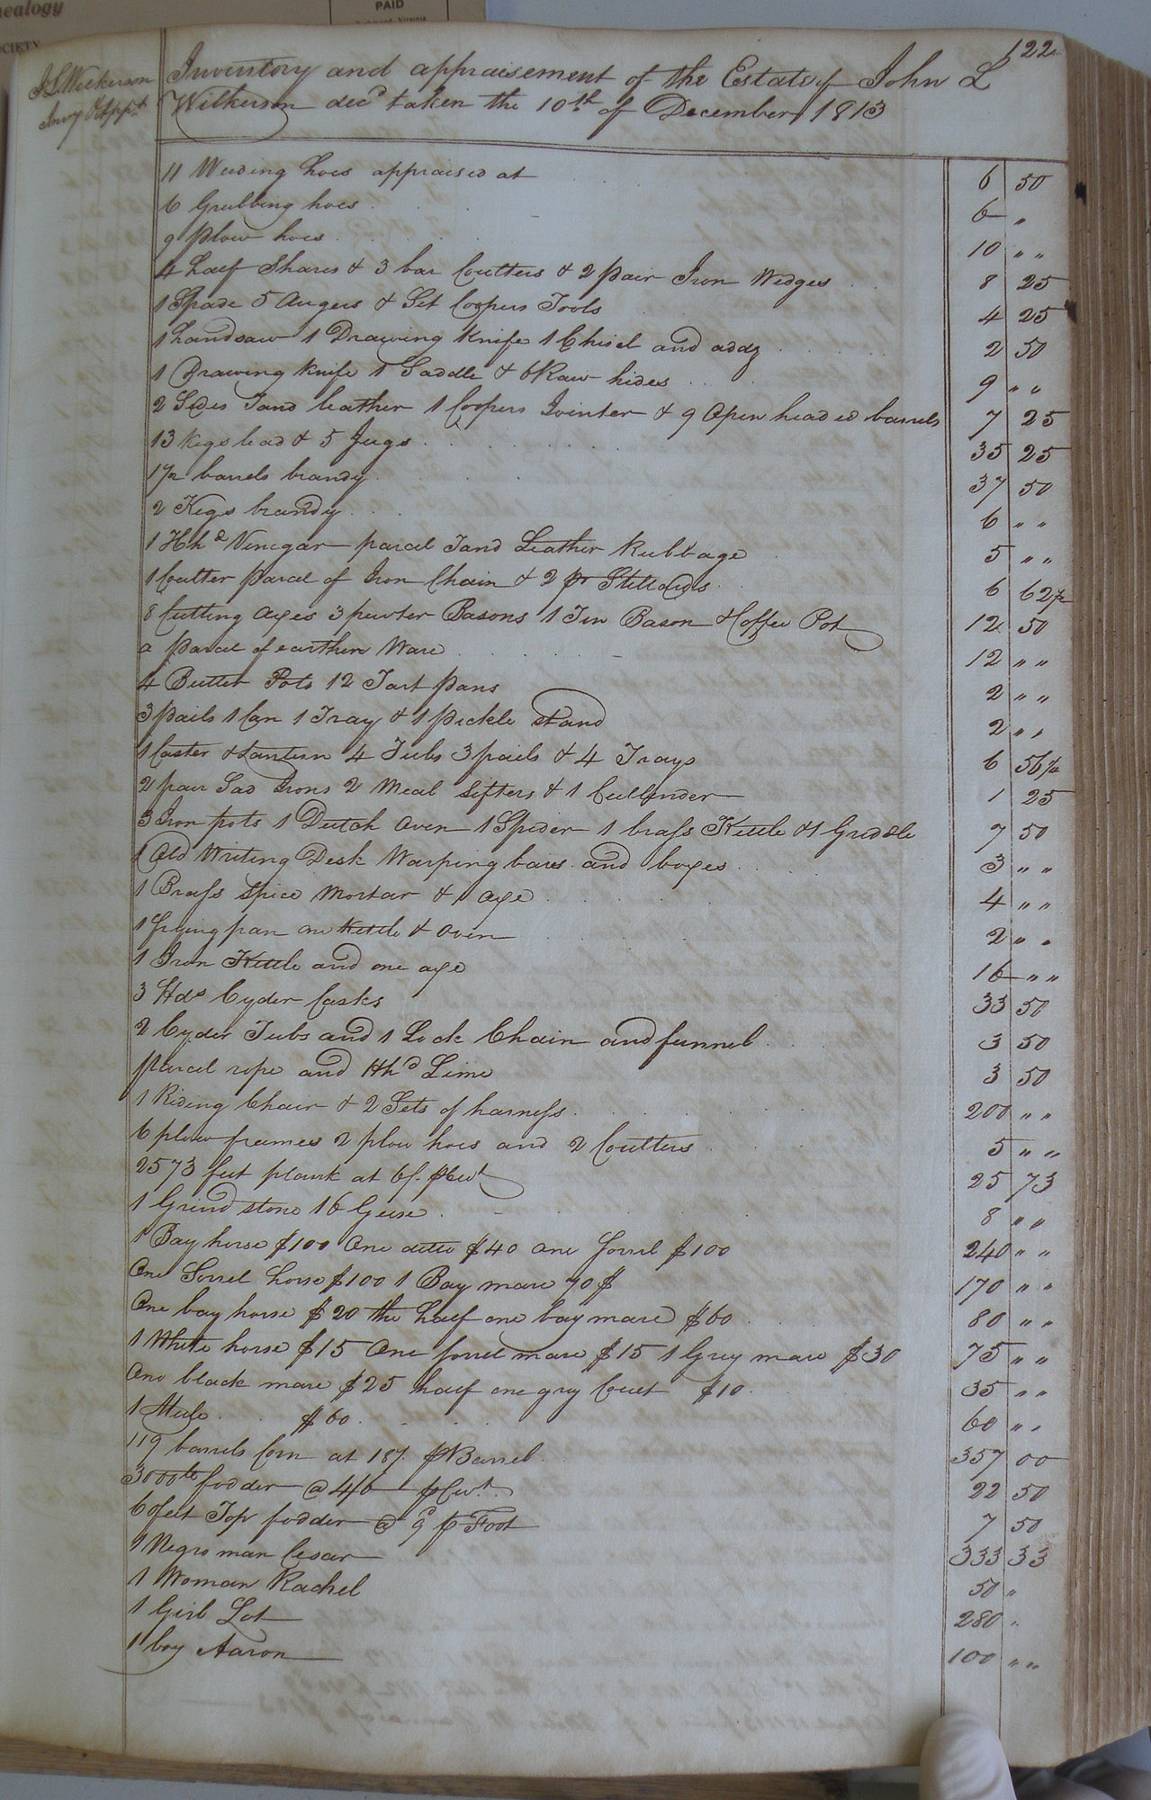 nealogy
OCIETY
PAID
122
J L Wilkerson
Invy & Appt
Inventory and appraisement of the Estate of John L
Wilkerson decd taken the 10th of December 1813
11 Weeding hoes appraised at 6 50
6 Grubbing hoes 6 "
9 plow hoes 10 " "
4 half Shares & 3 bar Coutters & 2 pair Iron Wedges 8 25
1 Spade 5 Augers & Set Coopers Tools 4 25
1 handsaw 1 Drawing Knife 1 Chisel and addz 2 50
1 Drawing Knife 1 Saddle & 6 Raw hides 9 " "
2 Sides Tand leather 1 Coopers Jointer & 9 Open headed barrels 7 25
13 Kegs lead & 5 Jugs 35 25
1 1/2 barrels brandy 37 50
2 Kegs brandy 6 " "
1 Hhd Vinegar parcel Tand Leather Rubbage 5 " "
1 Coutter parcel of Iron Chain & 2 pr Stillards 6 62 1/2
8 Cutting axes 3 pewter Basons 1 Tin Bason & Coffee Pot 12 50
a parcel of earthen Ware 12 " "
4 Butter Pots 12 Tart pans 2 " "
3 pails 1 Can 1 Tray & 1 pickle stand 2 " "
1 Caster & Lantern 4 Tubs 3 pails & 4 Trays 6 56 1/4
2 pair Sad Irons 2 Meal Sifters & 1 Cullender 1 25
3 Iron pots 1 Dutch Oven 1 Spider 1 brass Kettle & 1 Griddle 7 50
1 Old Writing Desk Warping bars and boxes 3 " "
1 Brass Spice Mortar & 1 axe 4 " "
1 frying pan one Kettle & Oven 2 " "
1 Iron Kettle and one axe 16 " "
3 Hds Cyder Casks 33 50
2 Cyder Tubs and 1 Lock Chain and funnel 3 50
parcel rope and Hhd Lime 3 50
1 Riding Chair & 2 Sets of harness 200 " "
6 plow frames 2 plow hoes and 2 Coutters 5 " "
2573 feet plank at 6/. ⅌ Cwt 25 73
1 Grind stone 16 Geese 8 " "
1 Bay horse $100 One ditto $40 one Sorrel $100 240 " "
One Sorrel horse $100 1 Bay mare 70$ 170 " "
One bay horse $20 the half one bay mare $60 80 " "
1 White horse $15 One sorrel mare $15 1 Grey mare $30 75 " "
One black mare $25 half one gray Coult $10 35 " "
1 Mule $60 60 " "
119 barrels Corn at 18/. ⅌ Barrel 357 00
3000 lb fodder @ 4/6 ⅌ Cwt. 22 50
60 feet Top fodder @ 9d ⅌ Foot 7 50
1 Negro man Cesar 333 33
1 Woman Rachel 50 "
1 Girl Lot 280 "
1 boy Aaron 100 " "